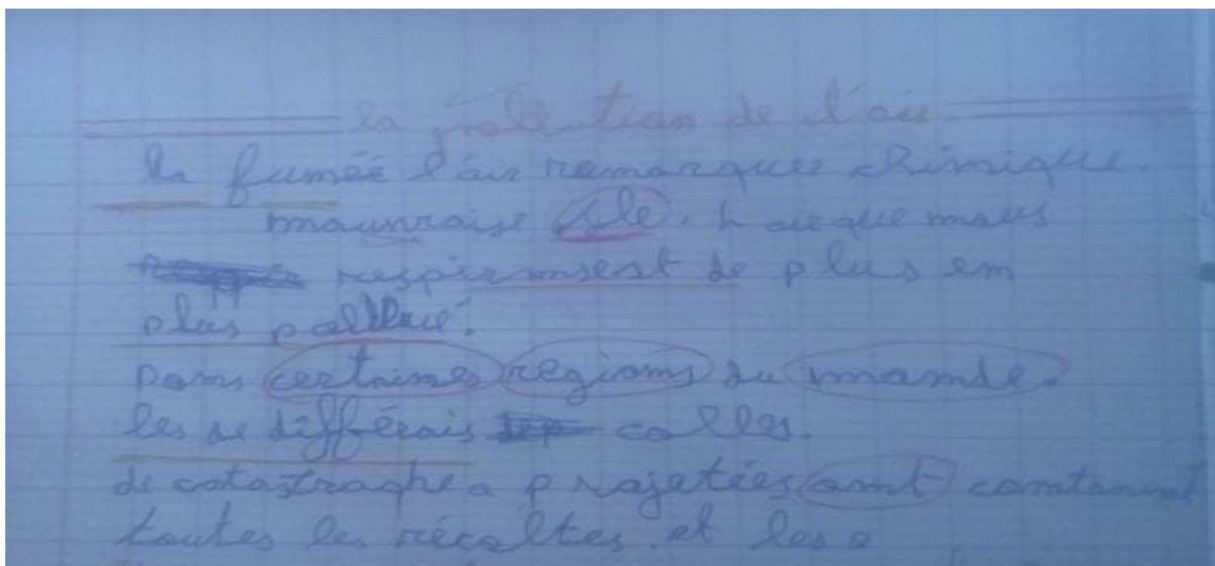 la pollution de l'air
la fumée l'air remarques chimique.
mauvraise sle. L'air que nous
respirmsent de plus em
plus pollué.
Dans certaines regions du mamde.
les de différais colles.
de catastraphe a projetées amt contaminent
toutes les récoltes et les